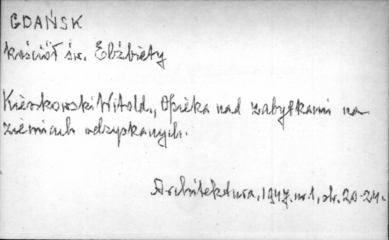 GDAŃSK
kościół św. Elżbiety
Kieszkowski Witold., Opieka nad zabytkami na
ziemiach odzyskanych.
Architektura, 1947, nr. 1, str. 20-24.